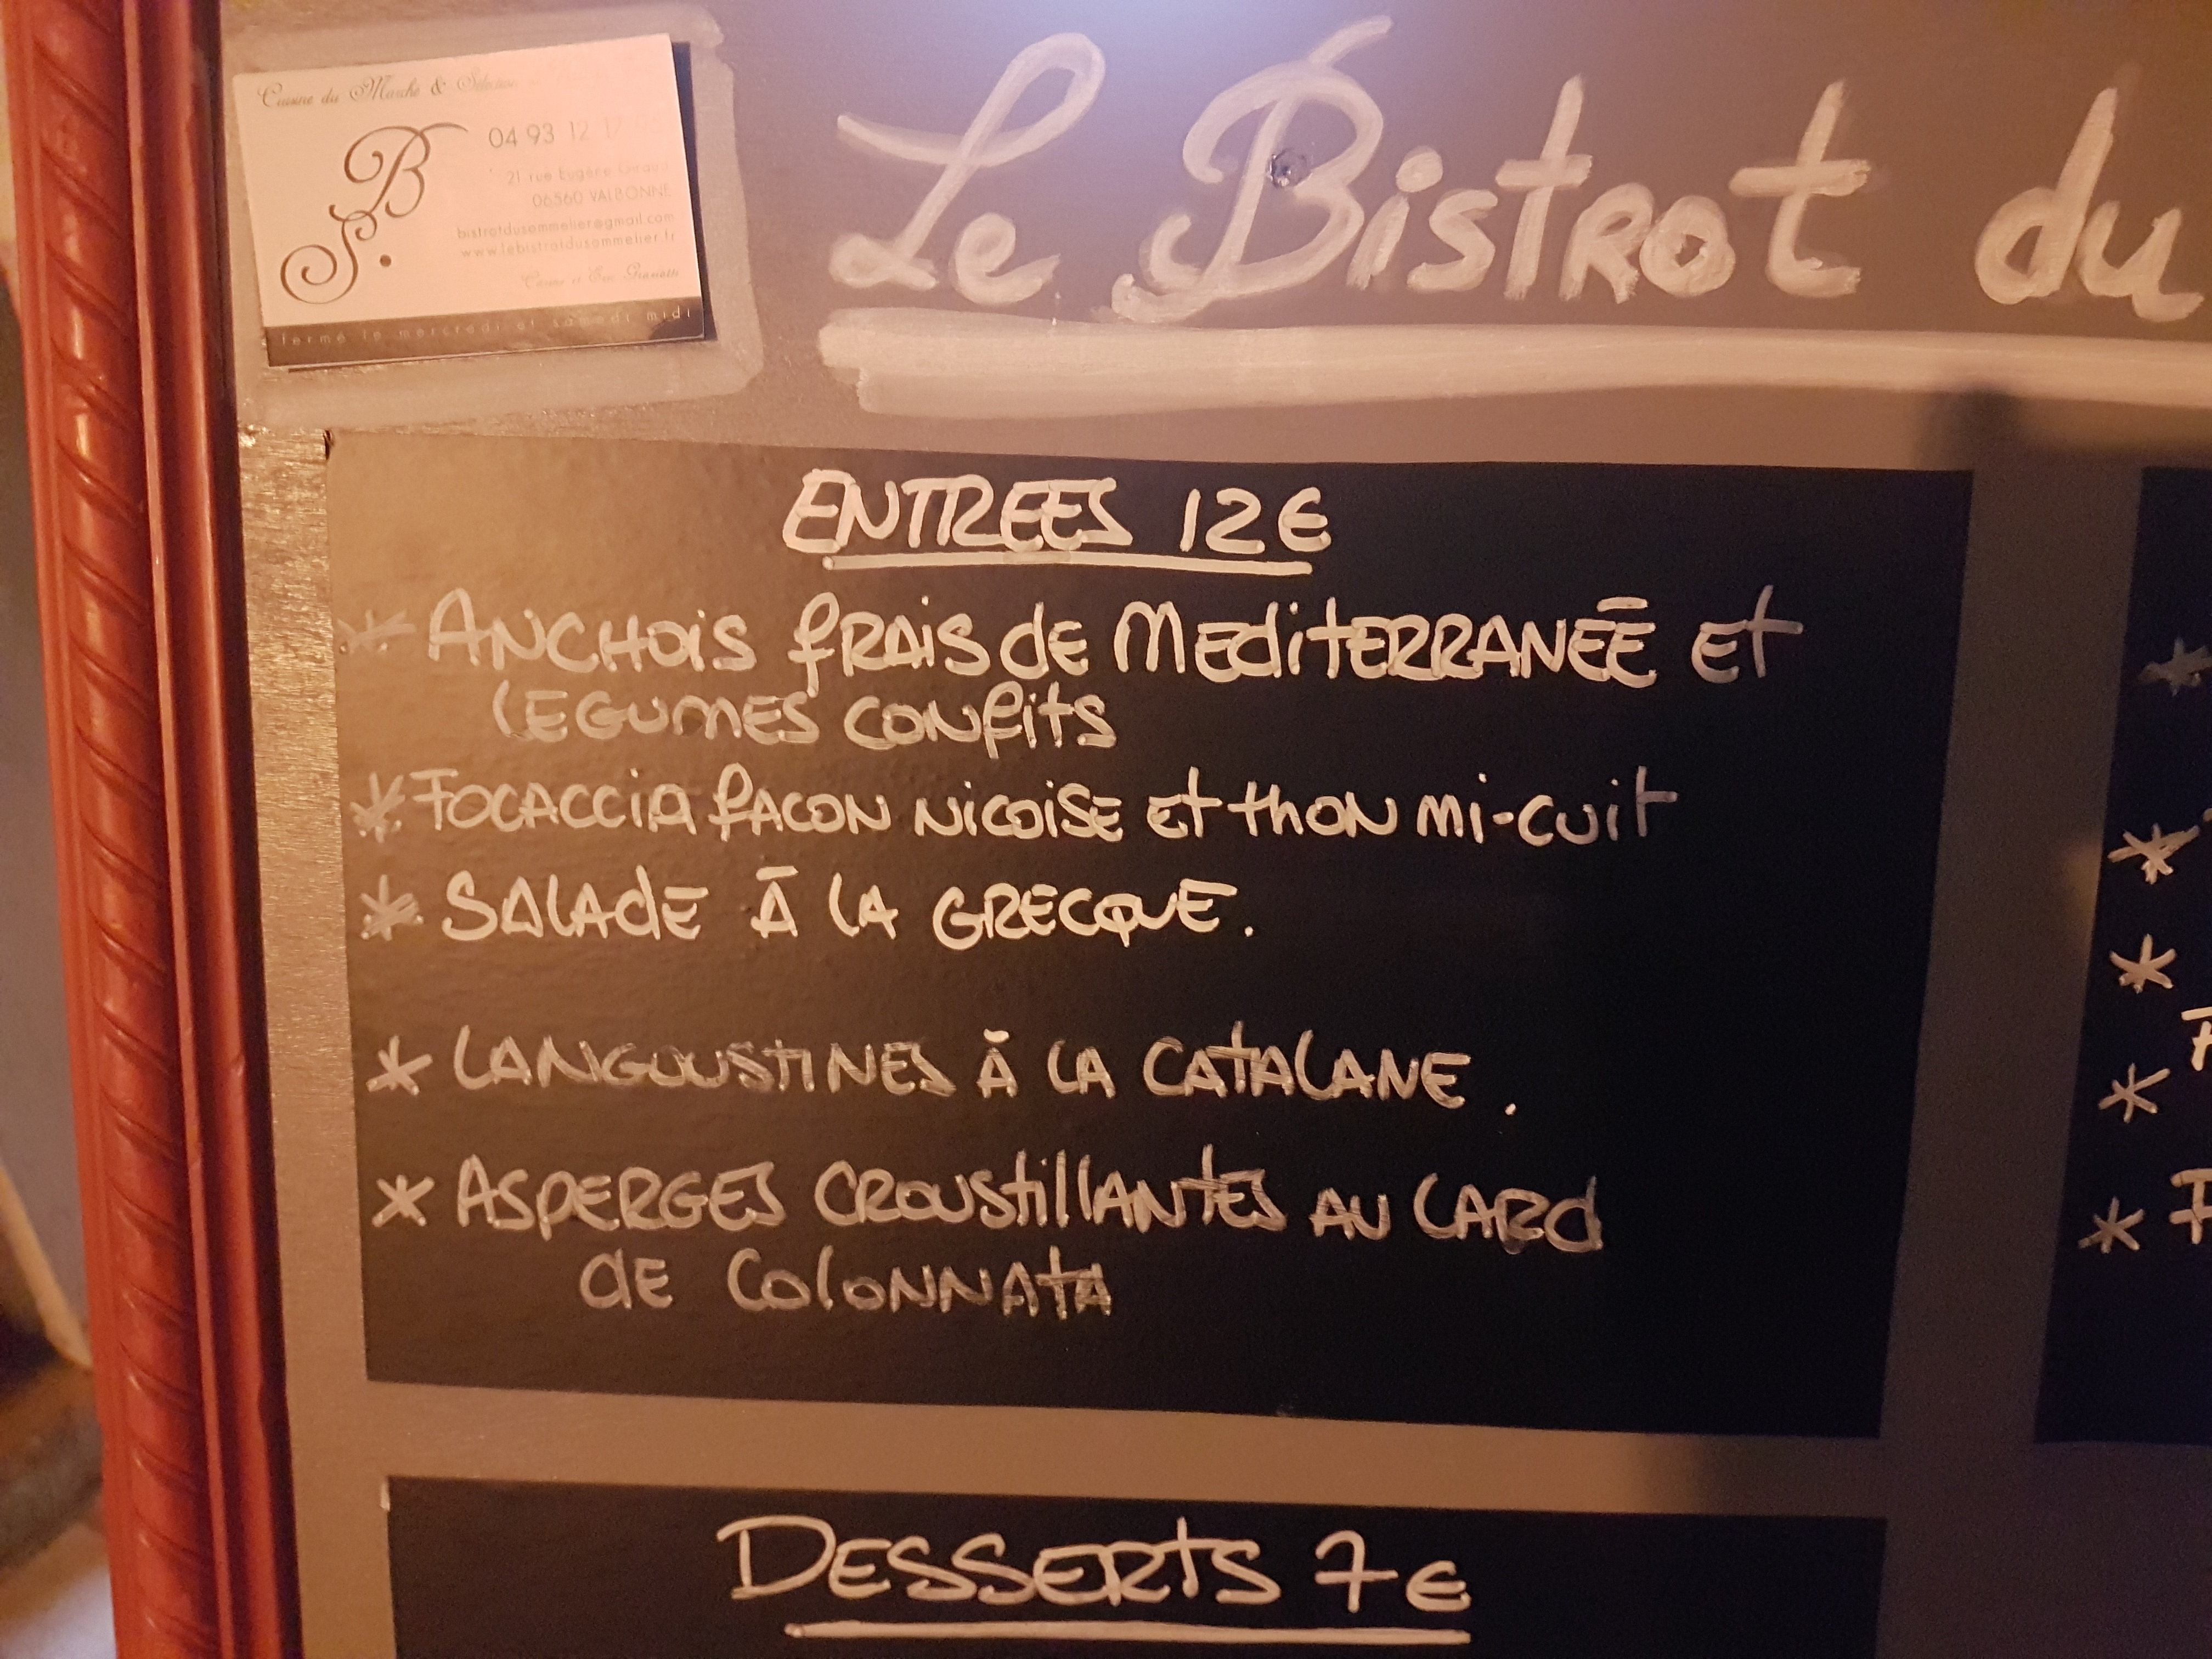 Cuisine du Marché & Sélection
04 93 12 17
21 rue Eugène Giraud
06560 VALBONNE
bistrotdusommelier@gmail.com
www.lebistrotdusommelier.fr
B
S.
fermé le mercredi et samedi midi
Le Bistrot du
ENTREES 12€
* ANCHOIS fRAIS de MEditERRANÉE Et
LEGUMES CONfits
* FOCACCIA fACON NICOISE Et thON mi-cuit
* SALADE À LA GRECQUE.
* LANGOUSTINES À LA CATALANE.
* ASPERGES CROUStillANtES AU LARd
dE COlONNAtA
DESSERtS 7€
*
*
*
*
*